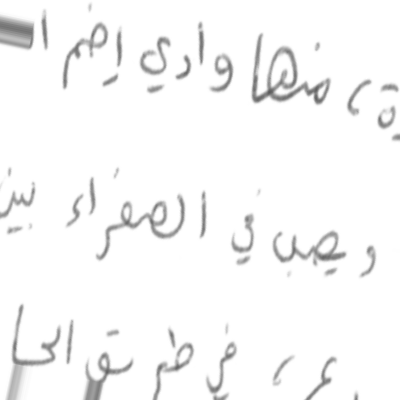 ة، منها وادي إضم ا
ويصب في الصفراء بين
ع، في طريق الحا